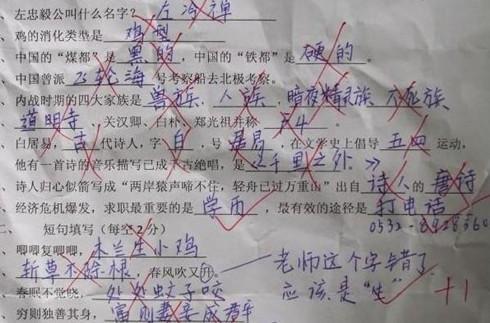 左忠毅公叫什么名字？左冷禅
、鸡的消化类型是 鸡型
、中国的“煤都”是 黑的 ，中国的“铁都”是 硬的 。
、中国曾派 飞轮海 号考察船去北极考察。
、内战时期的四大家族是 兽族、人族、暗夜精灵族 不死族
道明寺、关汉卿、白朴、郑光祖并称 F4 。
、白居易，古代诗人，字 白 ，号 居易 ，在文学史上倡导 五四 运动，
他有一首诗的音乐描写已成千古绝唱，是《千里之外》
、诗人归心似箭写成“两岸猿声啼不住，轻舟已过万重山”出自 诗人 的 唐诗
、经济危机爆发，求职最重要的是 学历 ，最有效的途径是 打电话
0532-
二、 短句填写（每空2分）
唧唧复唧唧，木兰生小鸡
斩草不除根，春风吹又升。——老师这个字错了
应该是“生” +1
、春眠不觉晓，处处蚊子咬
、穷则独善其身，富则妻妾成群